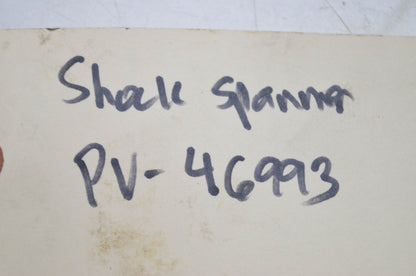 Shock spanner
PV-46993